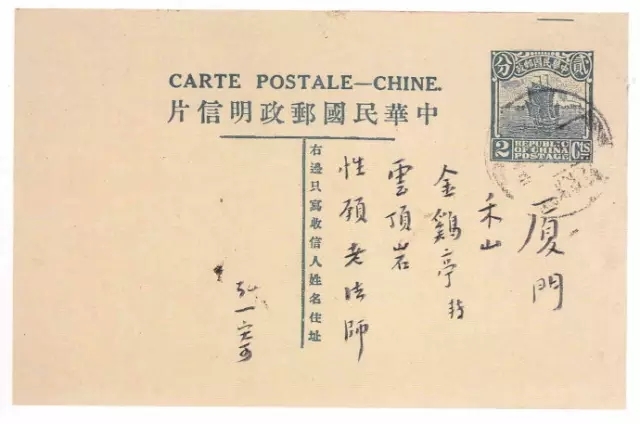 CARTE POSTALE—CHINE.
中華民國郵政明信片
中華民國郵政
貳分
2 REPUBLIC OF CHINA POSTAGE Cts.
廈門
禾山
金鷄亭
雲頂岩
性願老法師
右邊只寫收信人姓名住址
弘一